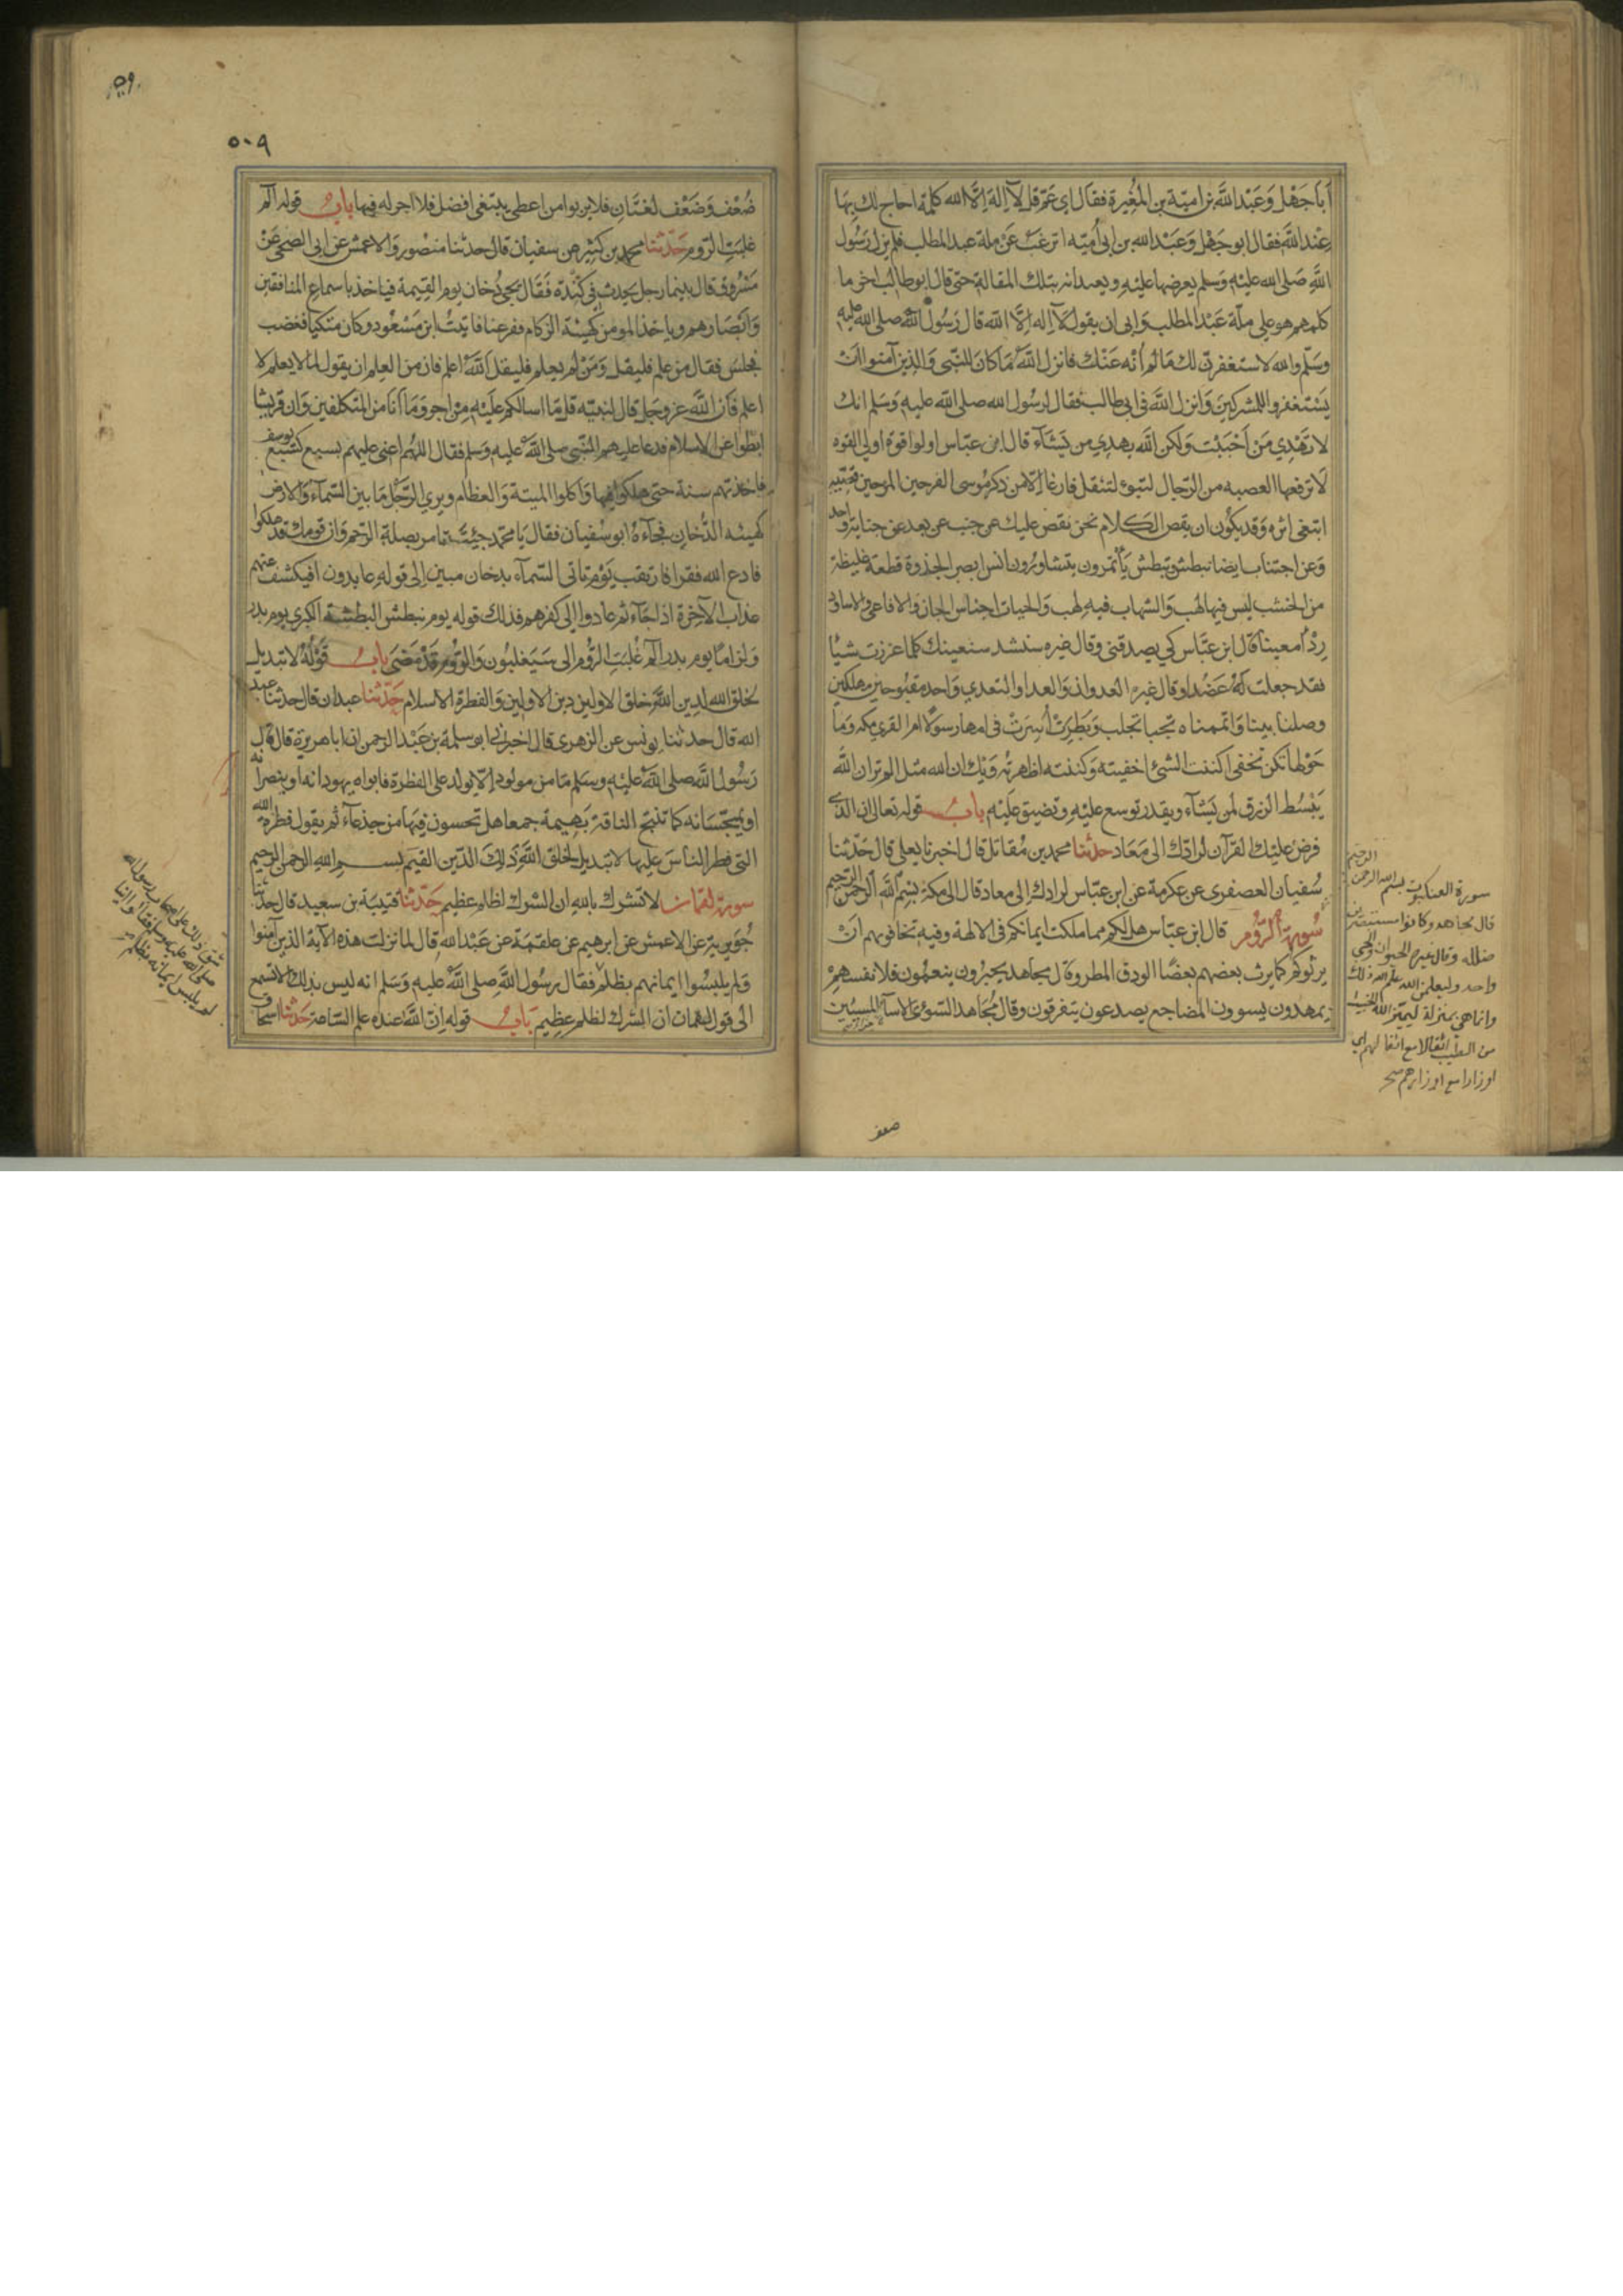 أبا جهل وعبد الله بن امية بن المغيرة فقال اي عم قل لا اله الا الله كلمة احاج لك بها
عند الله فقال ابو جهل وعبد الله بن ابي امية اترغب عن ملة عبد المطلب فلم يزل رسول
الله صلى الله عليه وسلم يعرضها عليه ويعيدانه بتلك المقالة حتى قال ابو طالب اخر ما
كلمهم هو على ملة عبد المطلب وابى ان يقول لا اله الا الله قال رسول الله صلى الله عليه
وسلم والله لاستغفرن لك ما لم أنه عنك فانزل الله ما كان للنبي والذين آمنوا ان
يستغفروا للمشركين وانزل الله في ابي طالب فقال لرسول الله صلى الله عليه وسلم انك
لا تهدي من احببت ولكن الله يهدي من يشاء قال ابن عباس اولوا قوة اولي القوه
لا يرفعها العصبه من الرجال لتنوء لتثقل فارغا الا من ذكر موسى الفرحين المرحين قصيه
ابتغى اثره وقد يكون ان يقص الكلام نحن نقص عليك عن جنب عن بعد عن جناية واحد
وعن اجتناب ايضا نبطش ونبطش يأتمرون يتشاورون انس ابصر الجذوة قطعة غليظة
من الخشب ليس فيها لهب والشهاب فيه لهب والحيات اجناس الجان والافاعي والاساود
ردءا معينا قال ابن عباس كي يصدقني وقال غيره سنشد سنعينك كلما عززت شيئا
فقد جعلت له عضدا وقال غيره العدوان والعدا والتعدي واحد مقبوحين مهلكين
وصلنا بينا واتممناه يجبا تجلب وبطرت أشرت في امها رسولا ام القرى مكه وما
حولها تكن تخفي اكننت الشئ اخفيته وكننته اظهرته ويك ان الله مثل الم تر ان الله
يبسط الرزق لمن يشاء ويقدر توسع عليه وتضيق عليه باب قوله تعالى ان الذي
فرض عليك القرآن لرادك الى معاد حدثنا محمد بن مقاتل قال اخبرنا يعلى قال حدثنا
سفيان العصفري عن عكرمة عن ابن عباس لرادك الى معاد قال الى مكة بسم الله الرحمن الرحيم
سورة الروم قال ابن عباس هل لكم مما ملكت ايمانكم في الالهة وفيه تخافونهم ان
يرثوكم كما يرث بعضهم بعضا الودق المطر وقال مجاهد يحبرون ينعمون فلانفسهم
يمهدون يسوون المضاجع يصدعون يتفرقون وقال مجاهد السوءى الاسآءة المسيئين
سورة العنكبوت بسم الله الرحمن الرحيم
قال مجاهد وكانوا مستبصرين
ضلله وقال غيره الحيوان والحي
واحد وليعلمن الله علم الله ذلك
وانما هي بمنزلة ليميز الله الخبيث
من الطيب اثقالا مع اثقالهم اي
اوزارا مع اوزارهم
صعف
٥٠٩
ضعف وضعف لغتان فلا يربوا من اعطى يبتغي افضل فلا اجر له فيها باب قوله الم
غلبت الروم حدثنا محمد بن كثير عن سفيان قال حدثنا منصور والاعمش عن ابي الضحى عن
مسروق قال بينما رجل يحدث في كندة فقال يجئ دخان يوم القيمة فياخذ باسماع المنافقين
وابصارهم وياخذ المومن كهيئة الزكام ففزعنا فاتيت ابن مسعود وكان متكيا فغضب
فجلس فقال من علم فليقل ومن لم يعلم فليقل الله اعلم فان من العلم ان يقول لما لا يعلم لا
اعلم فان الله عز وجل قال لنبيه قل ما اسالكم عليه من اجر وما انا من المتكلفين وان قريشا
ابطوا عن الاسلام فدعا عليهم النبي صلى الله عليه وسلم فقال اللهم اعني عليهم بسبع كسبع يوسف
فاخذتهم سنة حتى هلكوا فيها واكلوا الميتة والعظام ويرى الرجل ما بين السماء والارض
كهيئه الدخان فجاءه ابو سفيان فقال يا محمد جئت تامر بصلة الرحم وان قومك قد هلكوا
فادع الله فقرا فارتقب يوم تاتي السماء بدخان مبين الى قوله عايدون افيكشف عنهم
عذاب الآخرة اذا جاء ثم عادوا الى كفرهم فذلك قوله يوم نبطش البطشة الكبرى يوم بدر
ولزاما يوم بدر الم غلبت الروم الى سيغلبون والروم قد مضى باب قوله لا تبديل
لخلق الله لدين الله خلق الاولين دين الاولين والفطرة الاسلام حدثنا عبدان قال حدثنا عبد
الله قال حدثنا يونس عن الزهري قال اخبرني ابو سلمة بن عبد الرحمن ان ابا هريرة قال قال
رسول الله صلى الله عليه وسلم ما من مولود الا يولد على الفطرة فابواه يهودانه او ينصرانه
او يمجسانه كما تنتج الناقة بهيمة جمعا هل تحسون فيها من جذعاء ثم يقول فطرة الله
التي فطر الناس عليها لا تبديل لخلق الله ذلك الدين القيم بسم الله الرحمن الرحيم
سورة لقمان لا تشرك بالله ان الشرك لظلم عظيم حدثنا قتيبة بن سعيد قال حدثنا
جرير عن الاعمش عن ابرهيم عن علقمة عن عبد الله قال لما نزلت هذه الآية الذين آمنوا
ولم يلبسوا ايمانهم بظلم فقال رسول الله صلى الله عليه وسلم انه ليس بذلك الا تسمع
الى قول لقمان ان الشرك لظلم عظيم باب قوله ان الله عنده علم الساعة حدثنا اسحاق
شق ذلك على اصحاب رسول الله
صلى الله عليه وسلم فقالوا اينا
لم يلبس ايمانه بظلم